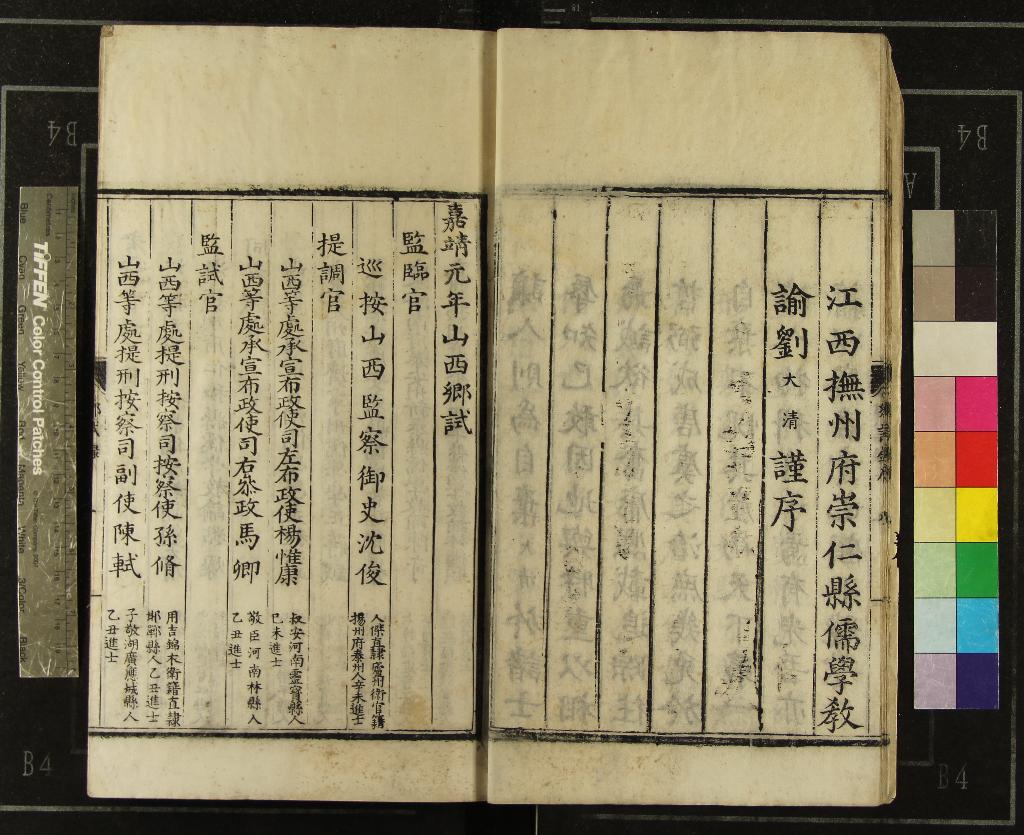 江西撫州府崇仁縣儒學教
諭劉大清謹序
嘉靖元年山西鄉試
監臨官
巡按山西監察御史沈俊
人傑直隸廬州衛官籍
揚州府泰州人辛未進士
提調官
山西等處承宣布政使司左布政使楊惟康
叔安河南靈寶縣人
己未進士
山西等處承宣布政使司右叅政馬卿
敬臣河南林縣人
乙丑進士
監試官
山西等處提刑按察司按察使孫脩
用吉錦衣衛籍直隸
邯鄲縣人乙丑進士
山西等處提刑按察司副使陳軾
子敬湖廣應城縣人
乙丑進士
TIFFEN Color Control Patches
Blue
Cyan
Green
Yellow
Red
Magenta
White
3/Color
Black
Centimetres
B4
B4
B4
B4
A